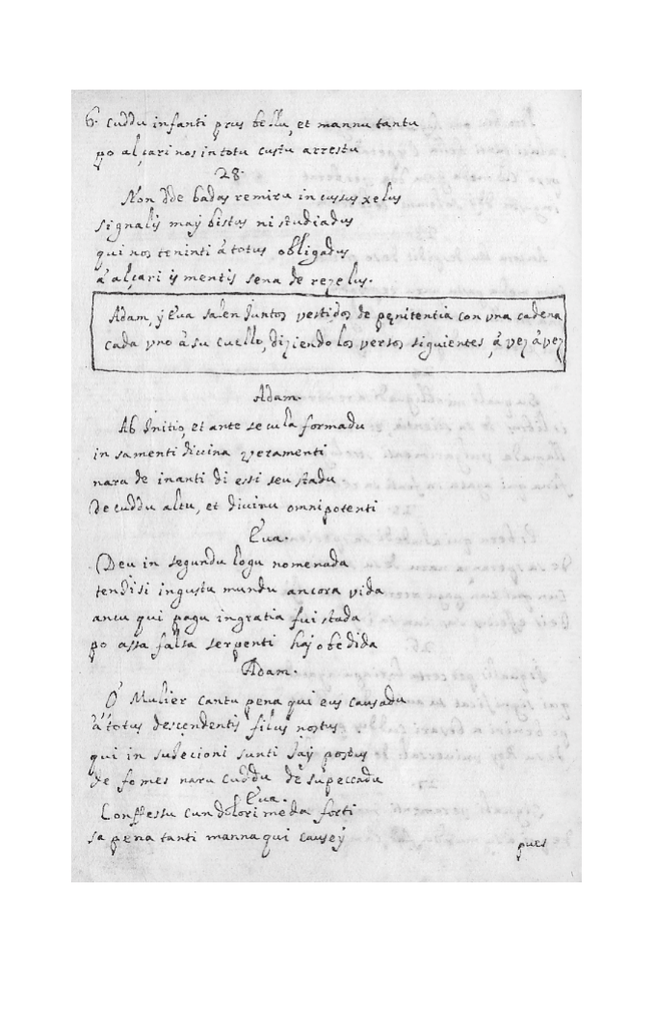 6. cuddu infanti prus bellu, et mannu tantu
po alçari nos in totu custu arrestu
28.
Non dde badas remiru in cussus xelus
signalis maÿ bistus ni studiadus
qui nos teninti â totus obligadus
â alçari is mentis sena de rezelus.
Adam, ÿ Eua salen juntos vestidos de penitentia con vna cadena
cada vno â su cuello, diziendo los versos siguientes, â vez â vez
Adam.
Ab Initio, et ante secula formadu
in sa menti diuina veramenti
naru de inanti di essi seu stadu
de cuddu altu, et diuinu omnipotenti
Eua.
Deu in segundu logu nomenada
tendisi in gustu mundu ancora vida
ancu qui pagu in gratia fui stada
po assa falsa serpenti haj obedida
Adam.
Ô Mulier cantu pena qui eus causadu
â totus descendentis filus nostus
qui in sudecioni sunti jaÿ postus
de fomes naru cuddu de su peccadu
Eua.
Confessu cun dolori meda forti
sa pena tanti manna qui causeÿ
pues